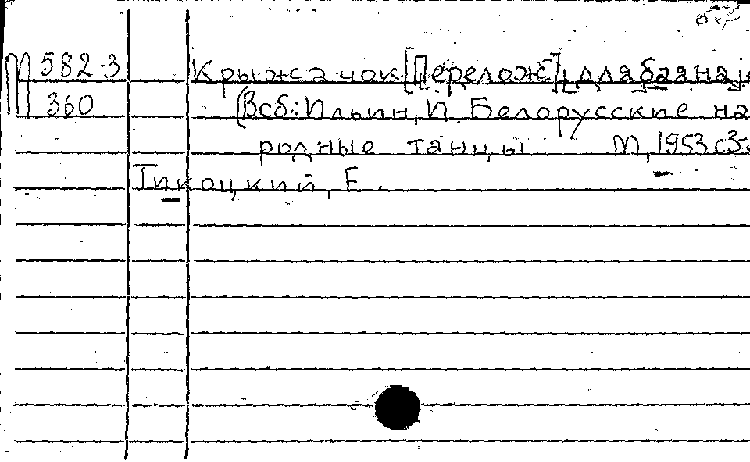 М 582-3 Крыжачок [Перелож.] для баяна,
360 (В сб.: Ильин, И. Белорусские на
родные танцы М, 1953 с 3
Тикоцкий, Е.